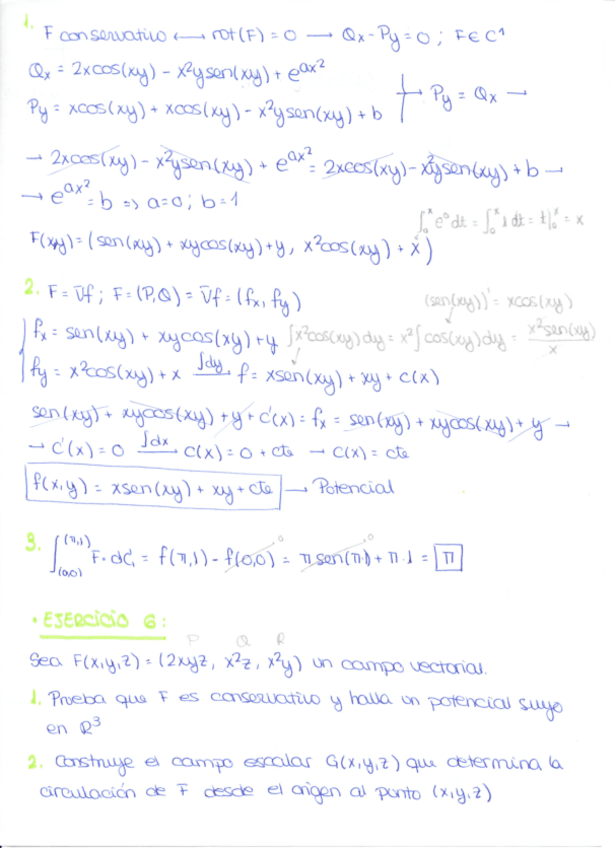 1. F conservativo ⟷ rot(F) = 0 → Qx - Py = 0 ; F ∈ C¹
Qx = 2xcos(xy) - x²ysen(xy) + e^(ax²)
Py = xcos(xy) + xcos(xy) - x²ysen(xy) + b
→ Py = Qx →
→ 2xcos(xy) - x²ysen(xy) + e^(ax²) = 2xcos(xy) - x²ysen(xy) + b →
→ e^(ax²) = b => a=0 ; b=1
∫₀ˣ e⁰dt = ∫₀ˣ 1 dt = t|₀ˣ = x
F(x,y) = (sen(xy) + xycos(xy) + y, x²cos(xy) + x)
2. F = ∇f ; F = (P,Q) = ∇f = (fx, fy)
(sen(xy))' = xcos(xy)
fx = sen(xy) + xycos(xy) + y
∫x²cos(xy)dy = x²∫cos(xy)dy = x²sen(xy)/x
fy = x²cos(xy) + x ∫dy→ f = xsen(xy) + xy + C(x)
sen(xy) + xycos(xy) + y + C'(x) = fx = sen(xy) + xycos(xy) + y →
→ C'(x) = 0 ∫dx→ C(x) = 0 + cte → C(x) = cte
f(x,y) = xsen(xy) + xy + cte → Potencial
3. ∫(0,0)^(π,1) F·dC₁ = f(π,1) - f(0,0) = πsen(π·1) + π·1 = π
• EJERCICIO 6:
P Q R
Sea F(x,y,z) = (2xyz, x²z, x²y) un campo vectorial.
1. Prueba que F es conservativo y halla un potencial suyo
en R³
2. Construye el campo escalar G(x,y,z) que determina la
circulación de F desde el origen al punto (x,y,z)